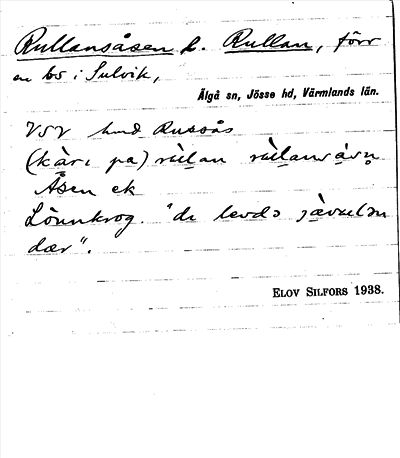 Rullansåsen l. Rullan, förr
en bs i Sulvik,
Älgå sn, Jösse hd, Värmlands län.
VSV hmd Russås
(kàrı pa) rùlan rùlansåsn̥
Åsen ek
Lönnkrog. "de levdə jàvueln
dær".
ELOV SILFORS 1938.